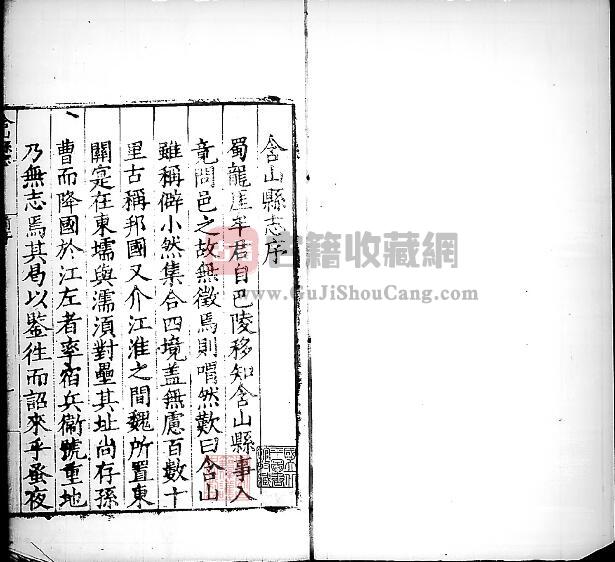 含山縣志序
蜀龍厓牟君自巴陵移知含山縣事入
竟問邑之故無徵焉則喟然歎曰含山
雖稱僻小然集合四境盖無慮百數十
里古稱邦國又介江淮之間魏所置東
關寔在東壖與濡須對壘其址尚存孫
曹而降國於江左者率宿兵衞號重地
乃無志焉其曷以鑒徃而詔來乎蚤夜
含山縣志
古籍收藏网
www.GuJiShouCang.com